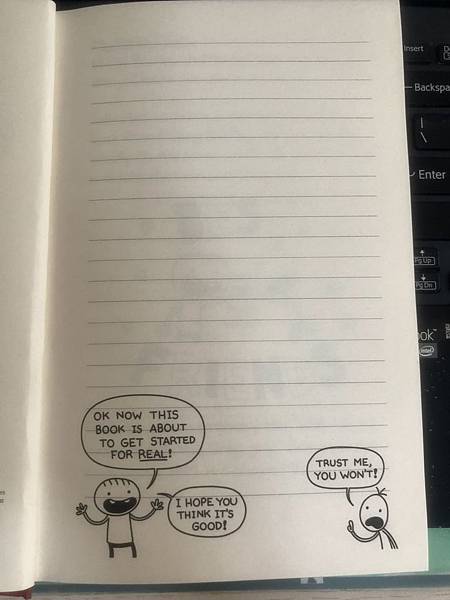 Insert
Backspa
|
\
Enter
Pg Up
Pg Dn
ok
intel
OK NOW THIS
BOOK IS ABOUT
TO GET STARTED
FOR REAL!
I HOPE YOU
THINK IT'S
GOOD!
TRUST ME,
YOU WON'T!